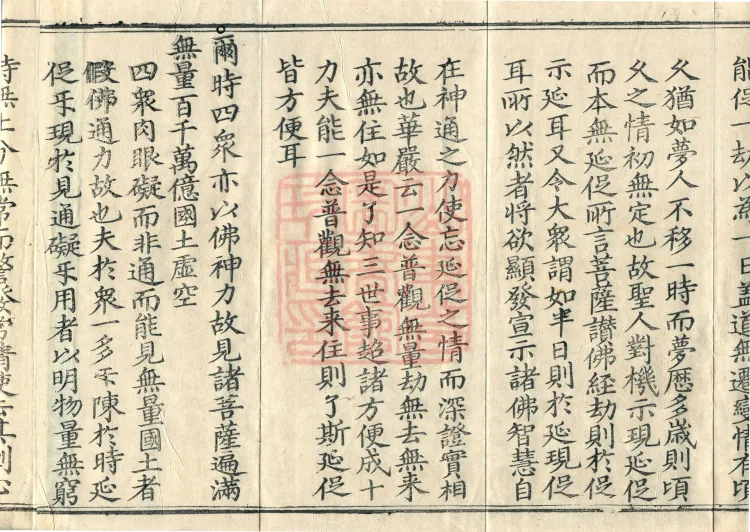 能促一劫以為一日盖道無遷變情有頃
乆猶如夢人不移一時而夢歷多歲則頃
乆之情初無定也故聖人對機示現延促
而本無延促所言菩薩讃佛經劫則於促
示延耳又令大衆謂如半日則於延現促
耳所以然者将欲顯發宣示諸佛智慧自
在神通之力使忘延促之情而深證實相
故也華嚴云一念普觀無量劫無去無来
亦無住如是了知三世事超諸方便成十
力夫能一念普觀無去来住則了斯延促
皆方便耳
爾時四衆亦以佛神力故見諸菩薩遍滿
無量百千萬億國土虛空
四衆肉眼礙而非通而能見無量國土者
假佛通力故也夫於衆一多㸦陳於時延
促㸦現於見通礙㸦用者以明物量無窮
時無止分無常而